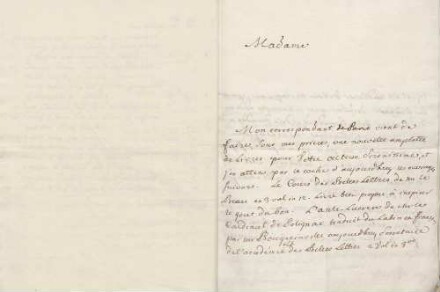 Madame
Mon correspondant de Paris vient de
faire, sous mes une nouvelle emplette
de Livres pour Votre Altesse Serenissime, et
j'en attens par le d'aujourdhuy les ouvrages
suivans. Le Cours des Belles Lettres de M. le
in 12. Livre bien propre à inspirer
le gout du bon. L'Anti-Lucrece de
Cardinal de Polignac traduit du Latin en
par M. Bougainville aujourdhuy Secretaire
de l'academie des Belles Lettres 2 Vol in 8vo